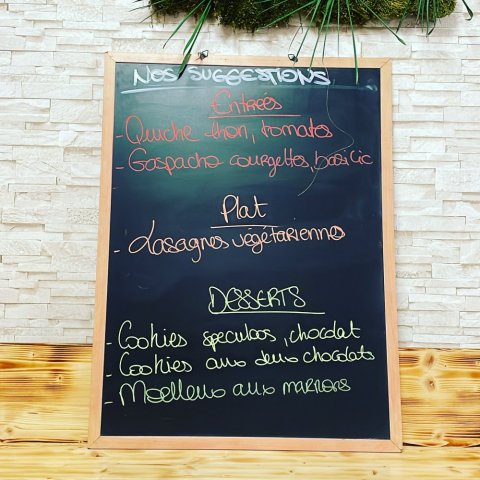 NOS SUGGESTIONS
Entrées
- Quiche thon, tomates
- Gaspacho courgettes, basilic
-
Plat
- Lasagnes végétariennes
DESSERTS
- Cookies speculoos, chocolat
- Cookies aux deux chocolats
- Moelleux aux marrons